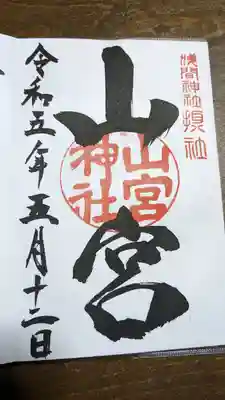 浅間神社摂社
山宮
山宮神社
令和五年五月十二日